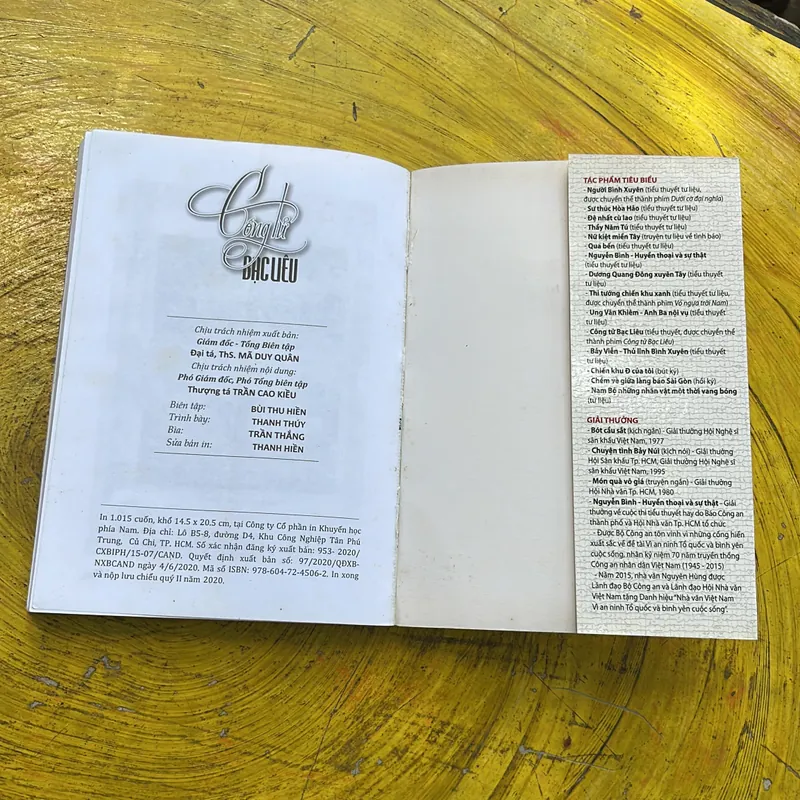 Công tử
BẠC LIÊU
Chịu trách nhiệm xuất bản:
Giám đốc - Tổng Biên tập
Đại tá, ThS. MÃ DUY QUÂN
Chịu trách nhiệm nội dung:
Phó Giám đốc, Phó Tổng biên tập
Thượng tá TRẦN CAO KIỀU
Biên tập: BÙI THU HIỀN
Trình bày: THANH THỦY
Bìa: TRẦN THẮNG
Sửa bản in: THANH HIỀN
In 1.015 cuốn, khổ 14.5 x 20.5 cm, tại Công ty Cổ phần in Khuyến học
phía Nam. Địa chỉ: Lô B5-8, đường D4, Khu Công Nghiệp Tân Phú
Trung, Củ Chi, TP. HCM. Số xác nhận đăng ký xuất bản: 953- 2020/
CXBIPH/15-07/CAND. Quyết định xuất bản số: 97/2020/QĐXB-
NXBCAND ngày 4/6/2020. Mã số ISBN: 978-604-72-4506-2. In xong
và nộp lưu chiểu quý II năm 2020.
TÁC PHẨM TIÊU BIỂU
- Người Bình Xuyên (tiểu thuyết tư liệu,
được chuyển thể thành phim Dưới cờ đại nghĩa)
- Sư thúc Hòa Hảo (tiểu thuyết tư liệu)
- Đệ nhất cù lao (tiểu thuyết tư liệu)
- Thầy Năm Tú (tiểu thuyết tư liệu)
- Nữ kiệt miền Tây (truyện tư liệu về tình báo)
- Quá bến (tiểu thuyết tư liệu)
- Nguyễn Bình - Huyền thoại và sự thật
(tiểu thuyết tư liệu)
- Dương Quang Đông xuyên Tây (tiểu thuyết
tư liệu)
- Thi tướng chiến khu xanh (tiểu thuyết tư liệu,
được chuyển thể thành phim Vó ngựa trời Nam)
- Ung Văn Khiêm - Anh Ba nội vụ (tiểu thuyết
tư liệu)
- Công tử Bạc Liêu (tiểu thuyết, được chuyển thể
thành phim Công tử Bạc Liêu)
- Bảy Viễn - Thủ lĩnh Bình Xuyên (tiểu thuyết
tư liệu)
- Chiến khu Đ của tôi (bút ký)
- Chém vè giữa làng báo Sài Gòn (hồi ký)
- Nam Bộ những nhân vật một thời vang bóng
(tư liệu)
GIẢI THƯỞNG
- Bót cầu sắt (kịch ngắn) - Giải thưởng Hội Nghệ sĩ
sân khấu Việt Nam, 1977
- Chuyện tình Bảy Núi (kịch nói) - Giải thưởng
Hội Sân khấu Tp. HCM, Giải thưởng Hội Nghệ sĩ
sân khấu Việt Nam, 1995
- Món quà vô giá (truyện ngắn) - Giải thưởng
Hội Nhà văn Tp. HCM, 1980
- Nguyễn Bình - Huyền thoại và sự thật - Giải
thưởng về cuộc thi tiểu thuyết hay do Báo Công an
thành phố và Hội Nhà văn Tp. HCM tổ chức
- Được Bộ Công an tôn vinh vì những cống hiến
xuất sắc về đề tài Vì an ninh Tổ quốc và bình yên
cuộc sống, nhân kỷ niệm 70 năm truyền thống
Công an nhân dân Việt Nam (1945 - 2015)
- Năm 2015, nhà văn Nguyên Hùng được
Lãnh đạo Bộ Công an và Lãnh đạo Hội Nhà văn
Việt Nam tặng Danh hiệu "Nhà văn Việt Nam
Vì an ninh Tổ quốc và bình yên cuộc sống".